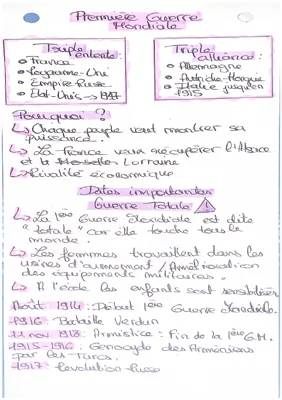 Première Guerre
Mondiale
Triple
entente :
France
Royaume-Uni
Empire Russe
Etat-Unis → 1917
Triple
alliance :
Allemagne
Autriche-Hongrie
Italie jusqu'en
1915
Pourquoi ?
↳ Chaque peuple veut montrer sa
puissance.
↳ La France veux récupérer l'Alsace
et la Moselle Lorraine
↳ Rivalité économique
Dates importantes
Guerre Totale
↳ La 1ère Guerre Mondiale est dite
"totale" car elle touche tous le
monde.
↳ Les femmes travaillent dans les
usines d'armement / Amélioration
des équipements militaires.
↳ A l'école les enfants sont sensibilisés
Août 1914 : Début 1ère Guerre Mondiale.
1916 : Bataille Verdun
11 nov 1918 : Armistice : Fin de la 1ère G.M.
1915-1916 : Génocyde des Arméniens
par les Turcs.
1917 : Revolution Russe